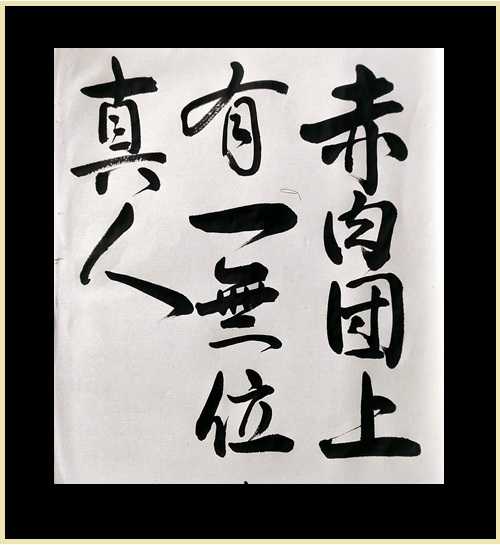 赤肉団上
有一無位
真人